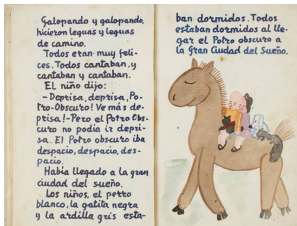 Galopando y galopando,
hicieron leguas y leguas
de camino.
Todos eran muy feli-
ces. Todos cantaban, y
cantaban y cantaban.
El niño dijo:
-Deprisa, deprisa, Po-
tro-Obscuro! Ve más de-
prisa!-Pero el Potro Obs-
curo no podía ir depri-
sa. El Potro obscuro iba
despacio, despacio, des-
pacio.
Había llegado a la gran
ciudad del sueño.
Los niños, el perro
blanco, la gatita negra
y la ardilla gris esta-
ban dormidos. Todos
estaban dormidos al lle-
gar el Potro obscuro a
la Gran Ciudad del Sueño.